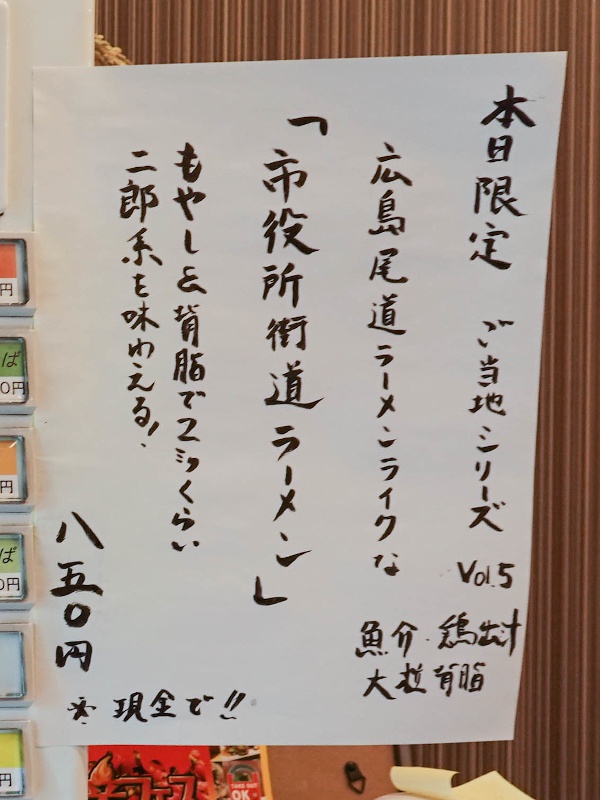 本日限定 ご当地シリーズ Vol.5
魚介・鶏出汁
大粒背脂
広島尾道ラーメンライクな
「市役所街道ラーメン」
もやしと背脂で2㍉くらい
二郎系を味わえる!
八五〇円
※現金で!!
円
ば
0円
円
ば
0円
円
TAKE OUT
OK